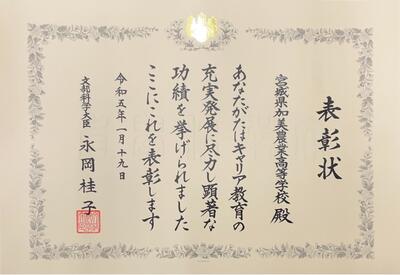 表彰状
宮城県加美農業高等学校 殿
あなたがたはキャリア教育の
充実発展に尽力し顕著な
功績を挙げられました
ここにこれを表彰します
令和五年一月十九日
文部科学大臣 永岡桂子